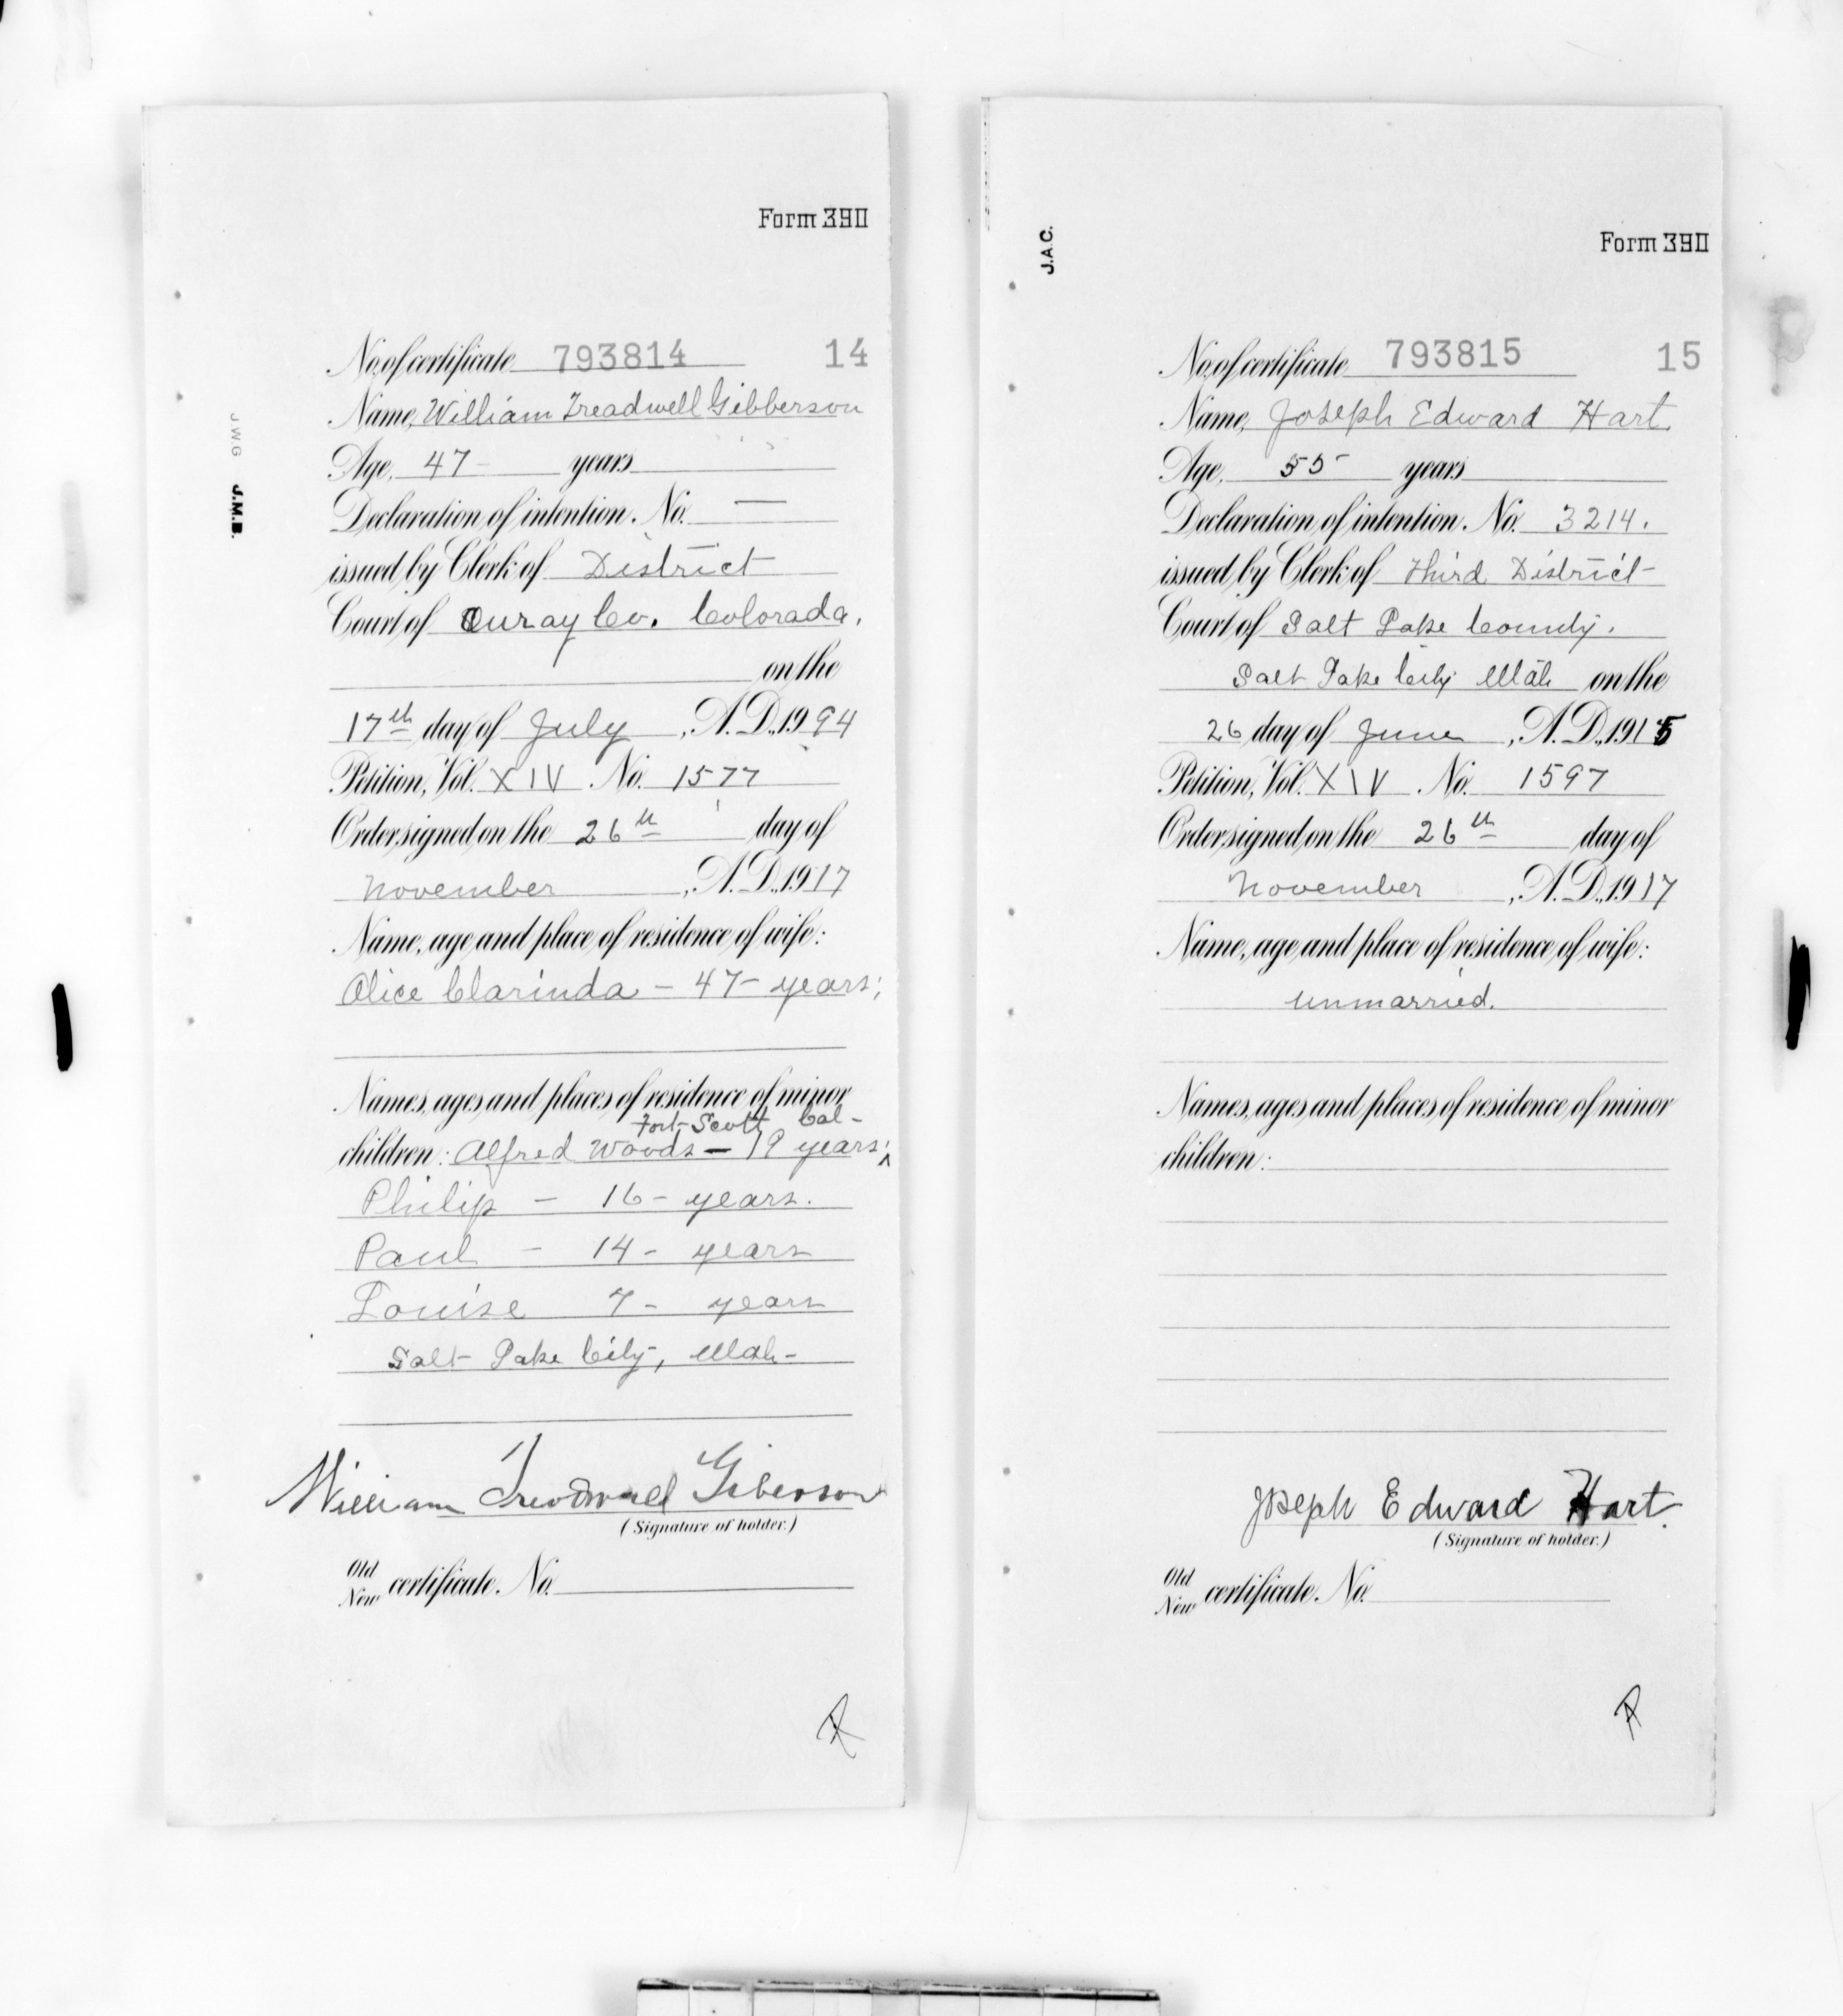 Form 390
No. of certificate 793814 14
Name, William Treadwell Gibberson
Age, 47 years
Declaration of intention. No. —
issued by Clerk of District
Court of Ouray Co. Colorado.
on the
17th day of July, A.D. 1994
Petition, Vol. XIV No. 1577
Order signed on the 26th day of
November, A.D. 1917
Name, age and place of residence of wife:
Alice Clarinda - 47 - years;
Names, ages and places of residence of minor
Fort Scott Cal-
children: Alfred Woods - 19 years;
Philip - 16 - years.
Paul - 14 - years
Louise 7 - years
Salt Lake City, Utah-
William Treadwell Giberson
(Signature of holder.)
Old
New certificate. No.
J.W.G J.M.B.
Form 390
J.A.C.
No. of certificate 793815 15
Name, Joseph Edward Hart.
Age, 55 years
Declaration of intention. No. 3214.
issued by Clerk of Third District
Court of Salt Lake County.
Salt Lake City Utah on the
26 day of June, A.D. 1915
Petition, Vol. XIV No. 1597
Order signed on the 26th day of
November, A.D. 1917
Name, age and place of residence of wife:
unmarried.
Names, ages and places of residence of minor
children:
Joseph Edward Hart.
(Signature of holder.)
Old
New certificate. No.